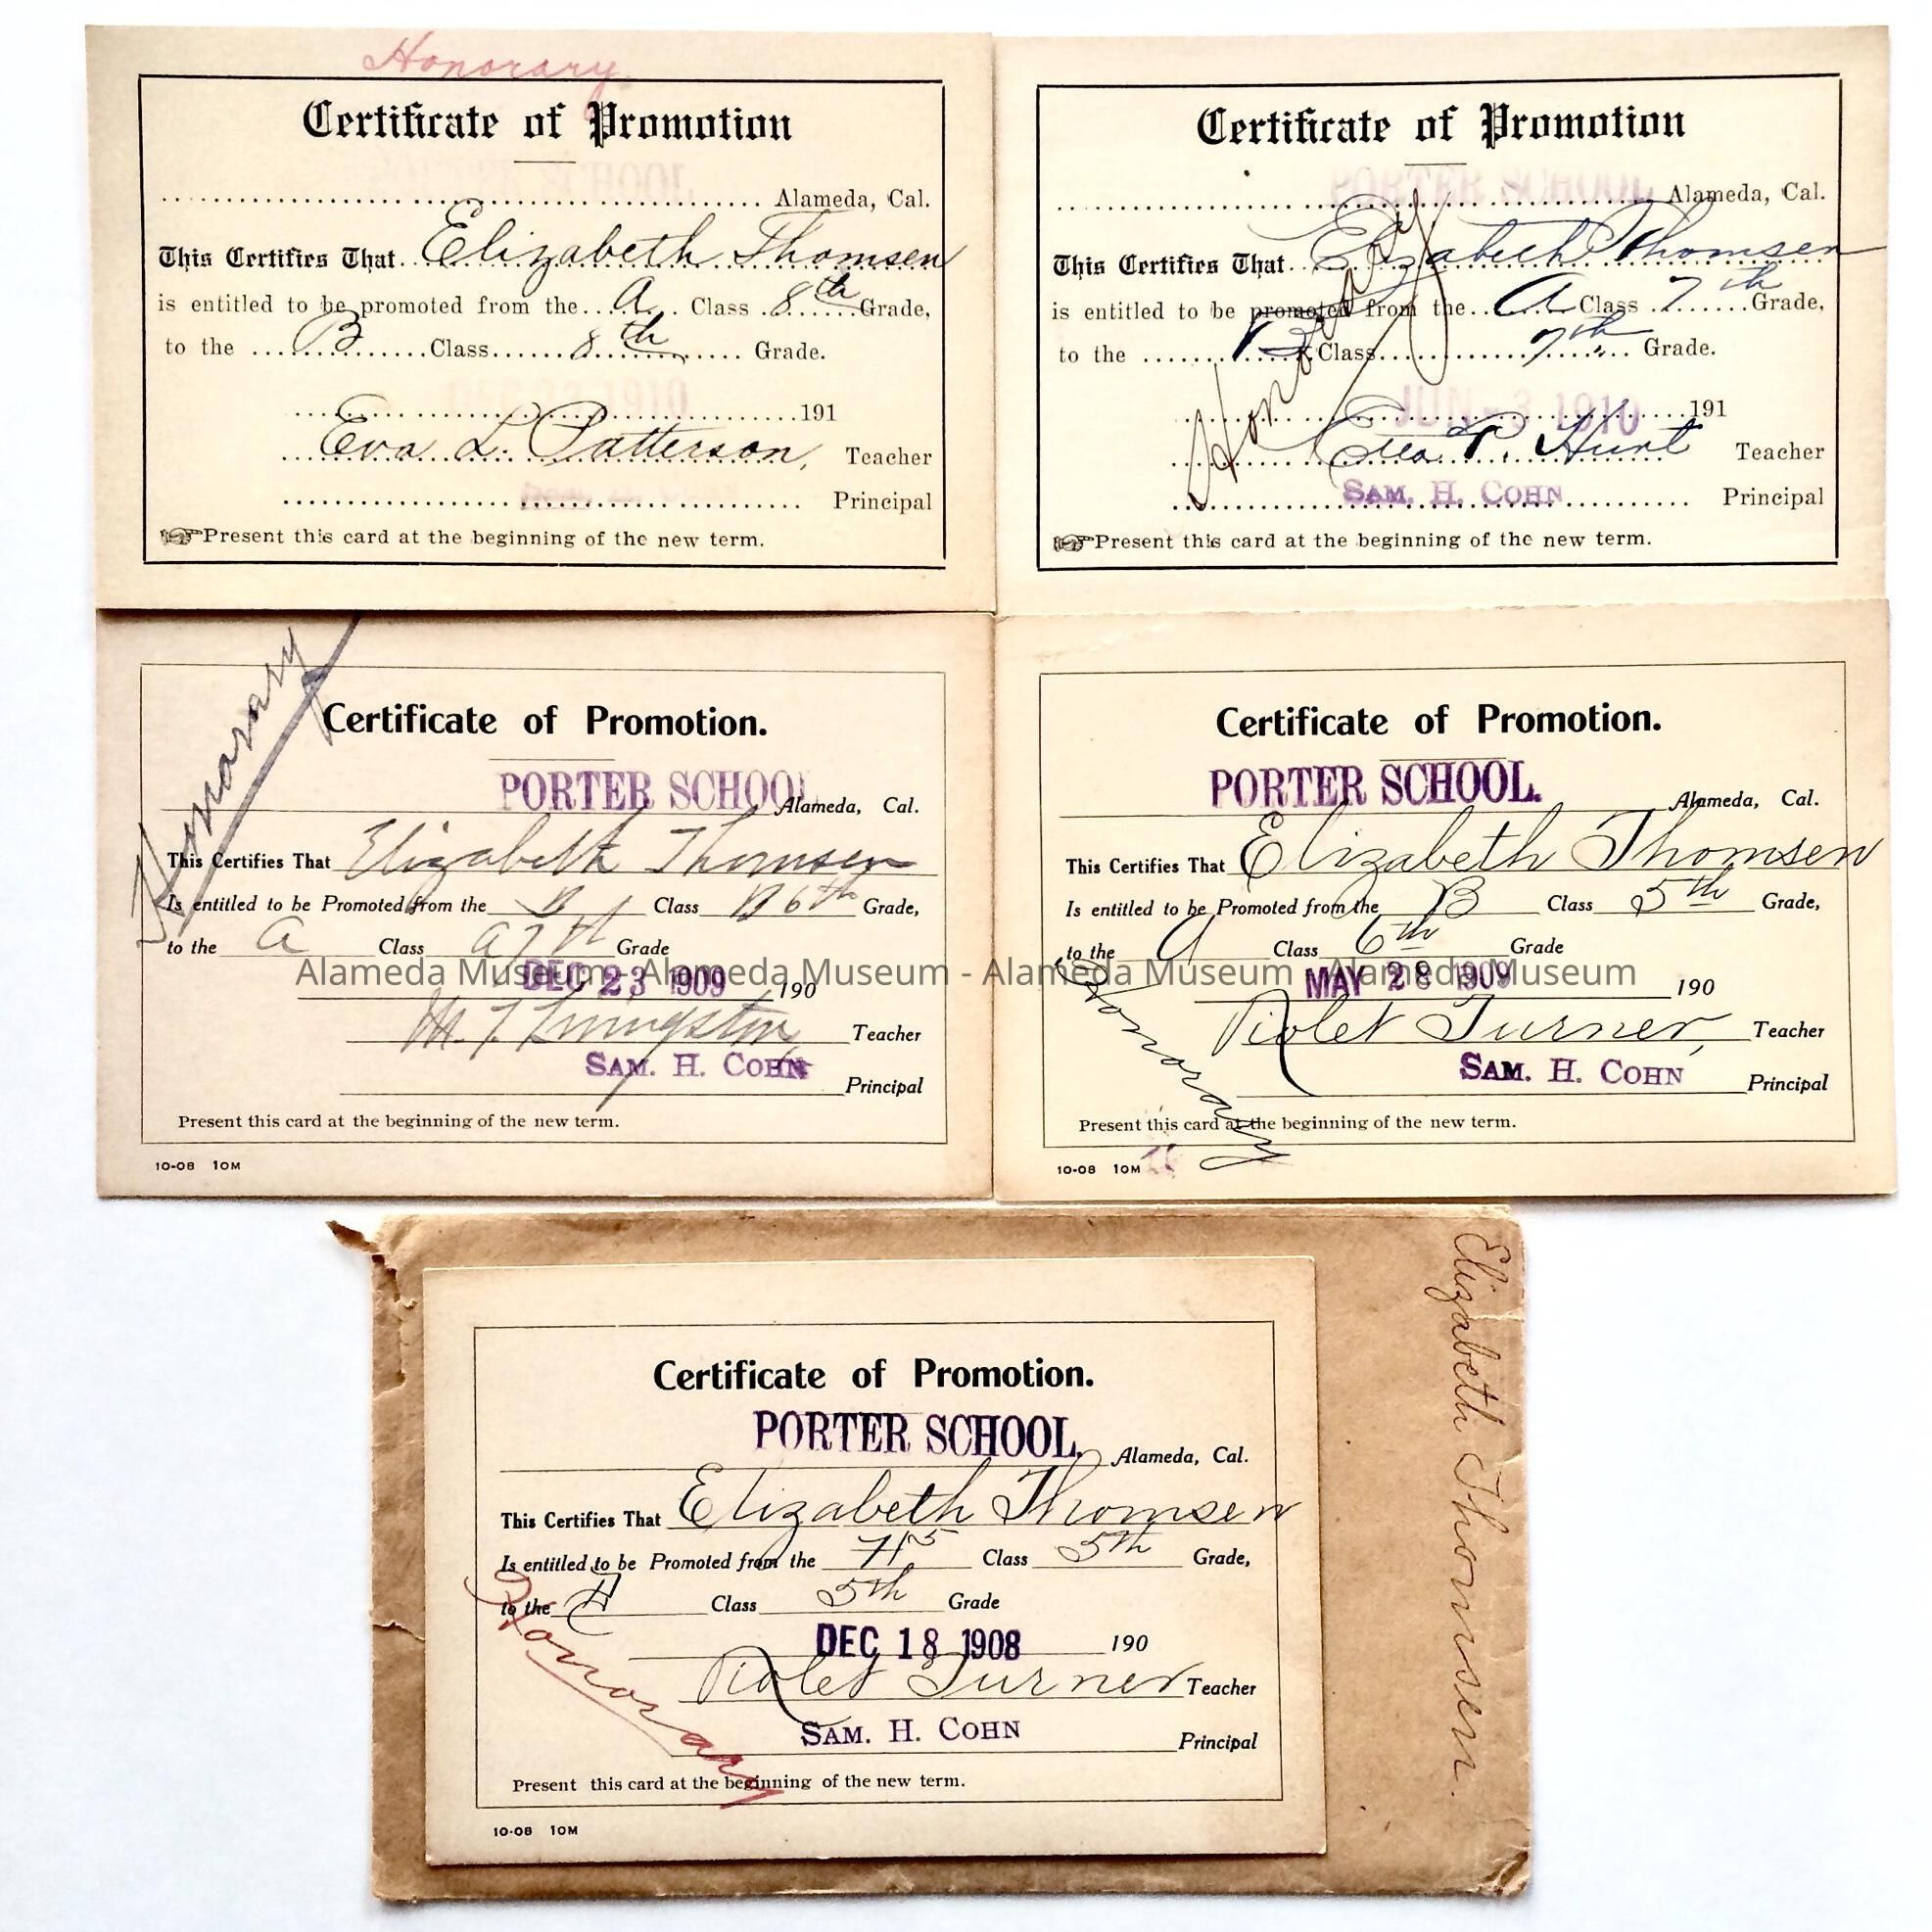 Honorary
Certificate of Promotion
PORTER SCHOOL
Alameda, Cal.
This Certifies That Elizabeth Thomsen
is entitled to be promoted from the A Class 8th Grade,
to the B Class 8th Grade.
DEC 1910
191
Eva L. Patterson, Teacher
Principal
Present this card at the beginning of the new term.
Certificate of Promotion
PORTER SCHOOL
Alameda, Cal.
This Certifies That Elizabeth Thomsen
is entitled to be promoted from the A Class 7th Grade,
to the B Class 7th Grade.
Honorary
JUN - 3 1910 191
P. Hunt Teacher
SAM. H. COHN Principal
Present this card at the beginning of the new term.
Honorary
Certificate of Promotion.
PORTER SCHOOL
Alameda, Cal.
This Certifies That Elizabeth Thomsen
Is entitled to be Promoted from the B Class B 6th Grade,
to the A Class A 7th Grade
DEC 23 1909 190
M. T. Livingston Teacher
SAM. H. COHN Principal
Present this card at the beginning of the new term.
10-08 10M
Certificate of Promotion.
PORTER SCHOOL.
Alameda, Cal.
This Certifies That Elizabeth Thomsen
Is entitled to be Promoted from the B Class 5th Grade,
to the A Class 6th Grade
MAY 28 1909 190
Honorary
Violet Turner, Teacher
SAM. H. COHN Principal
Present this card at the beginning of the new term.
10-08 10M
Alameda Museum - Alameda Museum - Alameda Museum - Alameda Museum
Certificate of Promotion.
PORTER SCHOOL.
Alameda, Cal.
This Certifies That Elizabeth Thomsen
Is entitled to be Promoted from the Class 5th Grade,
to the Class 5th Grade
DEC 18 1908 190
Honorary
Violet Turner Teacher
SAM. H. COHN Principal
Present this card at the beginning of the new term.
10-08 10M
Elizabeth Thomsen.